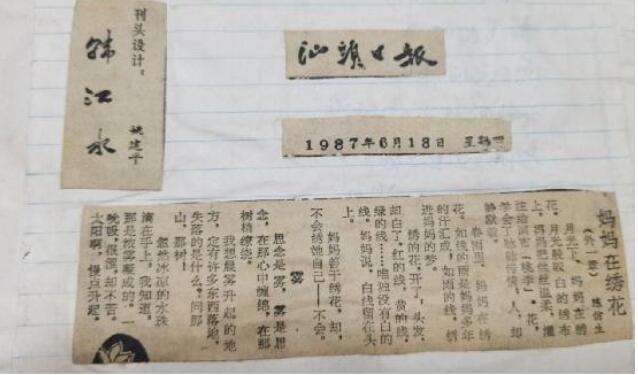 刊头设计：
韩江水
姚建平
汕頭日報
1987年6月18日 星期四
妈妈在绣花
（外一章）
月光下，妈妈在绣
花，月光般皎白的绣布
上，妈妈把丝丝温柔，灌
静默着。
春雨里，妈妈在绣
花。如线的雨是妈妈多年
的汗汇成，如雨的线，绣
进妈妈的梦。
绣的花，开了，头发，
却白了，红的线，黄的线，
绿的线……唯独没有白的
线。妈妈说，白线留在头
上。
妈妈善于绣花，却，
不会绣她自己——不会。
雾
思念是雾，雾是思
念，在那心中缠绵，在那
树梢缭绕。
我想晨雾升起的地
方，定有许多东西落地，
失落的是什么？问那
山，那树！
忽然冰凉的水珠
滴在手上，我知道，
那是浓雾凝成的。一
吮吸，很涩，却不苦。
太阳啊，慢点升起。